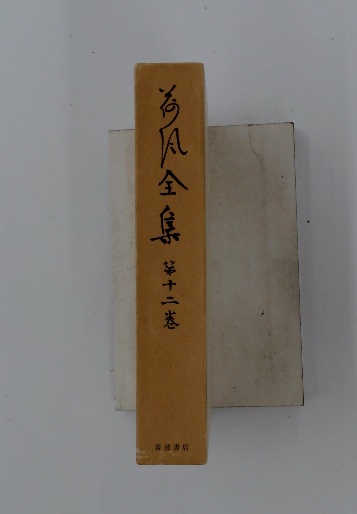 荷風全集
第十二巻
岩波書店